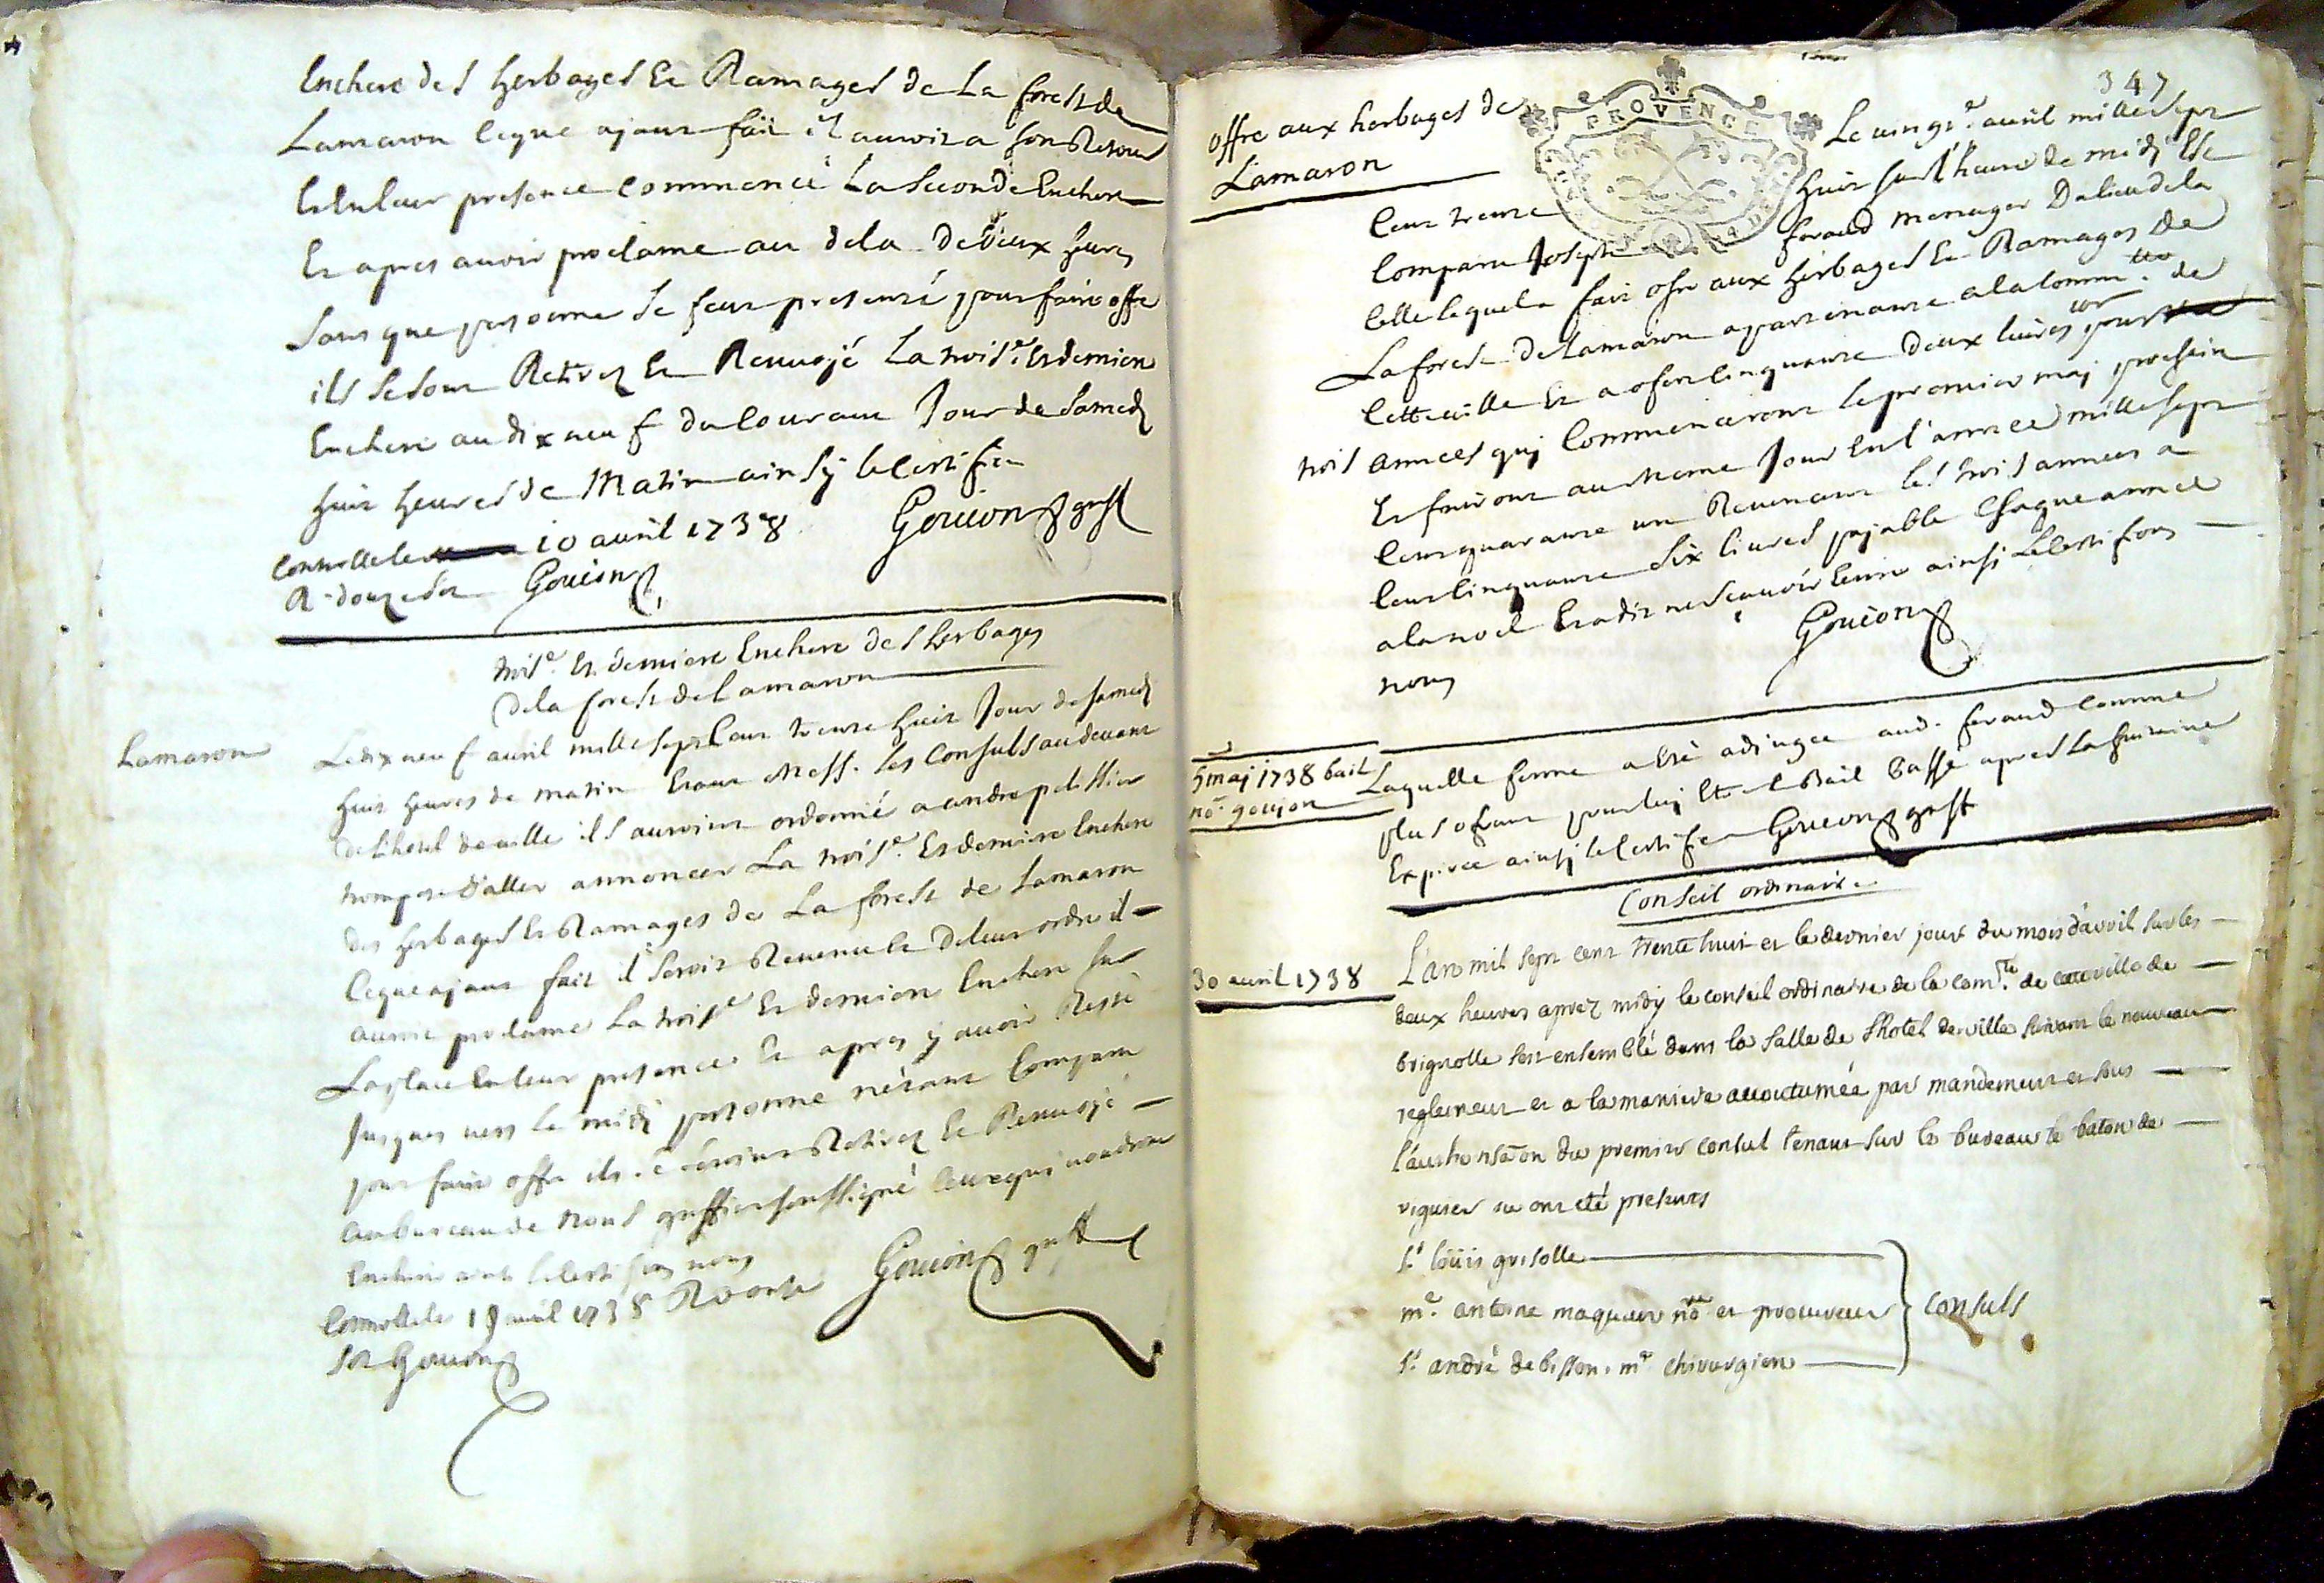 Enchere des herbages Et Ramages de La forest de
Lamaron lequel ajant fait il auroit a son Retour
Et En leur presence commencé La Seconde Enchere
Et apres avoir proclame au dela de deux heures
Sans que personne se feut presenté pour faire offre
ils se sont Retirez Et Renvojé La trois.e Et derniere
Enchere au dix neuf du courant Jour de Samedj
huit heures de Matin ainsÿ le Certifie
Controllé le 10 avril 1738 Goujon greff
R. douze s. Goujon
trois.e Et derniere Enchere des herbages
de la forest de Lamaron
Lamaron
Le dix neuf avril mille sept Cent trente huit Jour de samedj
huit heures de matin Etant Mess. les Consuls au devant
de L'hotel de ville ils auroient ordonné a andre pelissier
trompete d'aller annoncer La trois.e Et derniere Enchere
des herbages Et Ramages de La forest de Lamaron
lequel ajant fait il seroit Revenu Et de leur ordre il
auroit proclame La trois.e Et derniere Enchere sur
La place En leur presence Et apres y avoir Resté
Jusques vers le midj personne n'étant Comparu
pour faire offre ils se seroient Retirez Et Renvojé
au bureau de nous greffier soussigné Ceux qui voudront
Encherir ainsi le Certifions nous
Controllé le 19 avril 1738 R onze Goujon greff
s. Goujon
347
offre aux herbages de
Lamaron
PROVENCE
Le vingt.e avril mille sept
Cent trente huit sur l'heure de midj Est
Comparu Joseph feraud menager du lieu de la
Celle lequel a fait ofre aux herbages Et Ramages de
La forest de Lamaron apartenante a la Comm.té de
Cette ville Et a ofert Cinquante deux livres pour
trois années quj Commenceront le premier maj prochain
Et finiront au meme Jour En l'année mille sept
Cent quarante un Revenant les trois années a
Cent Cinquante Six livres pajable Chaque année
a la noel Et a dit ne scavoir Ecrire ainsi le Certifions
nous Goujon
5 maj 1738 bail
no.e goujon
Laquelle ferme a Eté adjugée aud. feraud Comme
plus ofrant pour luj Et le Bail Passé apres La huitaine
Expirée ainsj le Certifie Goujon greff
Conseil ordinaire
30 avril 1738
L'an mil sept cent trente huit et le dernier jour du mois d'avril sur les
deux heures aprez midy le conseil ordinaire de la com.té de cette ville de
brignolle s'est ensemblé dans la salle de l'hotel de ville suivant le nouveau
reglement et a la maniere accoutumée par mandement et sous
l'authorisaōn du premier consul tenant sur le bureau le baton de
viguier ou ont eté presents
S.r loüis grisolle
m.e antoine maquan no.re et procureur
S.r andré debisson m.e chirurgien
Consuls